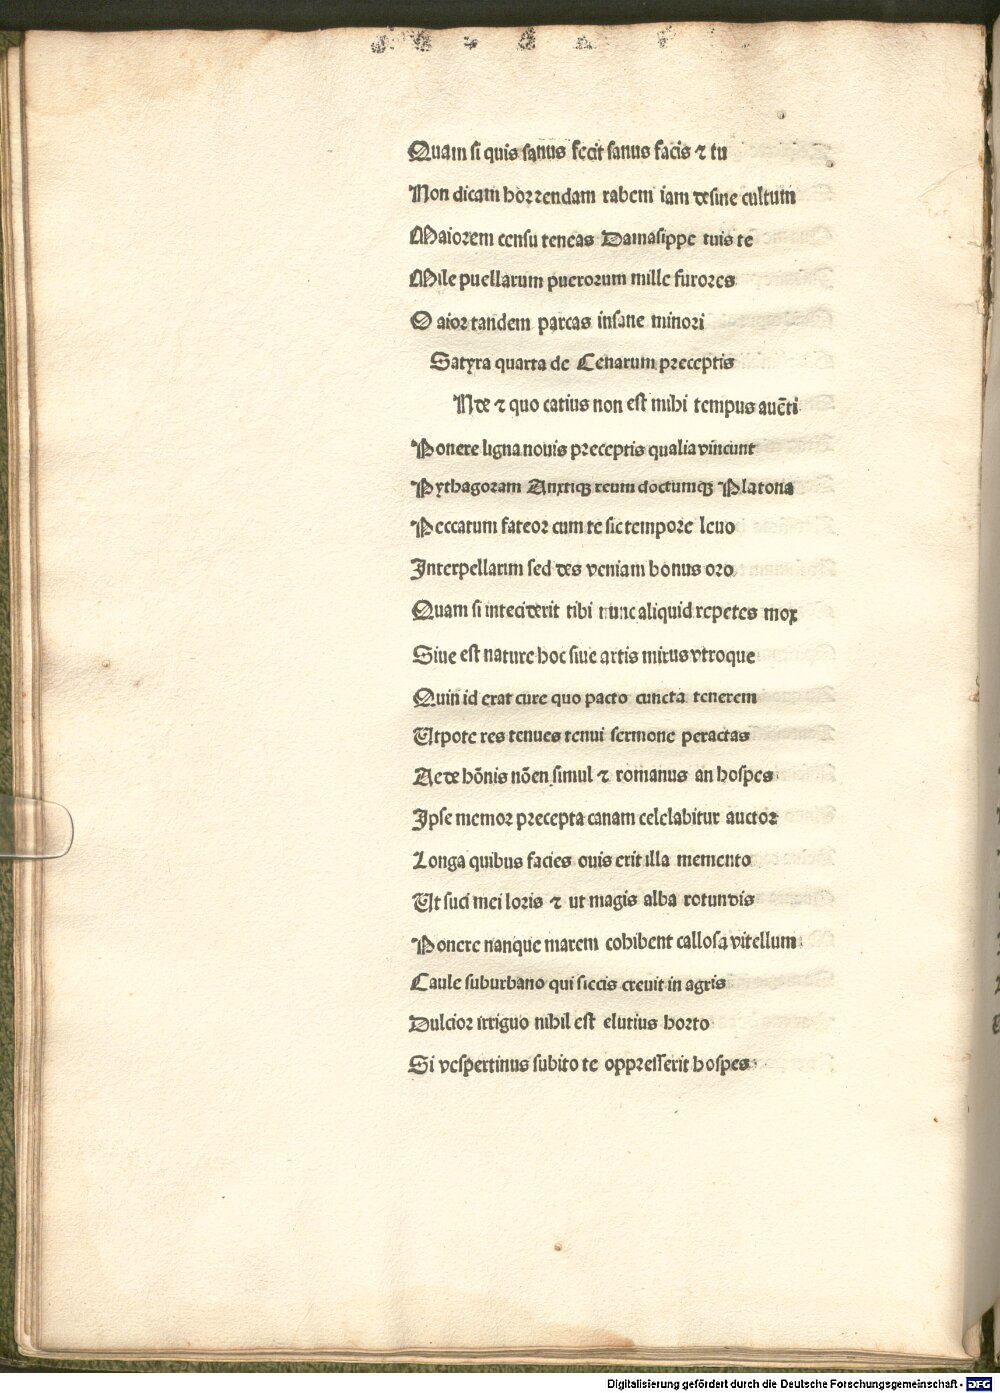 Quam si quis sanus fecit sanus facis ⁊ tu
Non dicam horrendam rabem iam desine cultum
Maiorem censu teneas Damasippe tuis te
Mile puellarum puerorum mille furores
O aior tandem parcas insane minori
Satyra quarta de Cenarum preceptis
Nde ⁊ quo catius non est mihi tempus auēti
Ponere ligna nouis preceptis qualia vincunt
Pythagoram Anytiqꝫ reum doctumqꝫ Platona
Peccatum fateor cum te sic tempore leuo
Interpellarim sed des veniam bonus oro
Quam si inteciderit tibi nunc aliquid repetes mox
Siue est nature hoc siue artis mirus vtroque
Quin id erat cure quo pacto cuncta tenerem
Utpote res tenues tenui sermone peractas
Aede hōnis nōen simul ⁊ romanus an hospes
Ipse memor precepta canam celelabitur auctor
Longa quibus facies ouis erit illa memento
Ut suci mei loris ⁊ ut magis alba rotundis
Ponere nanque marem cohibent callosa vitellum
Caule suburbano qui siccis creuit in agris
Dulcior irriguo nihil est elutius horto
Si vespertinus subito te oppresserit hospes
Digitalisierung gefördert durch die Deutsche Forschungsgemeinschaft - DFG